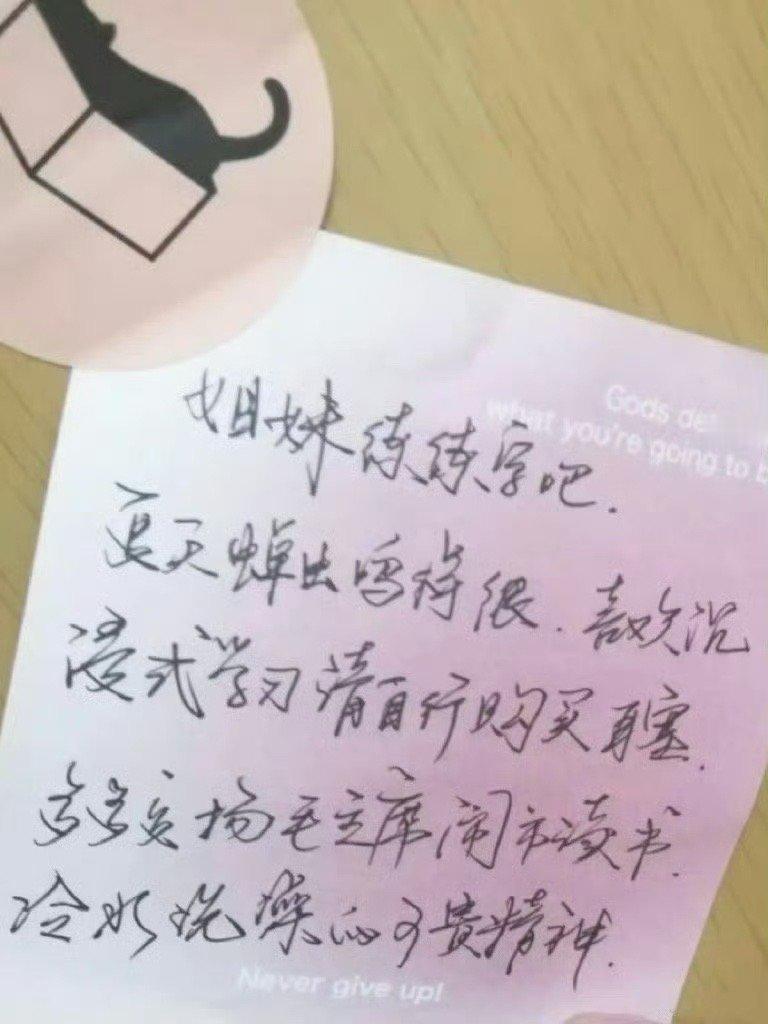 Gods de
what you're going to b
姐妹练练字吧.
夏天蝉虫鸣得很.喜欢沉
浸式学习请自行购买耳塞.
多多发扬毛主席闹市读书.
冷水洗澡的可贵精神.
Never give up!